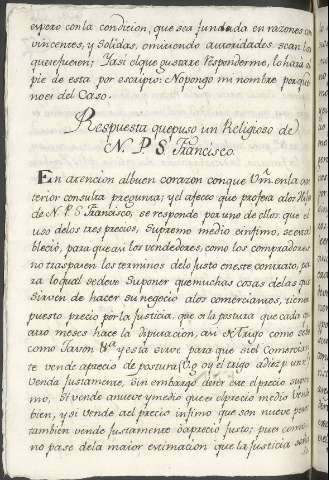 espero con la condicion, que sea fundada en razones con
vincentes, y Solidas, omitiendo autoridades sean las
que se fueren; Y asi el que gustare Responderme, lo hará al
pie de esta por escripto: No pongo mi nombre porque
no es del Caso.
Respuesta que puso un Religioso de
N. P. S. Francisco.
En atencion al buen corazon con que Vm. en la an
terior consulta pregunta; y el afecto que profesa a los Hijos
de N. P. S. Francisco, se responde por uno de ellos que el
uso de los tres precios, Supremo medio e infimo, se esta
bleció, para que asi los vendedores, como los compradores
no traspasen los terminos de lo justo en este contrato, pa
ra lo qual se deve Suponer que muchas cosas de las que
sirven de hacer su negocio a los comerciantes, tienen
puesto precio por la justicia, que es la postura que cada qu
atro meses hace la diputacion, asi de trigo como
como Javon &a. y esta sirve para que si el Comercian
te vende a precio de postura V.g. oy el trigo a diez
Venda justamente, Sin embargo de ser este el precio supre
mo, Si vende a nueve y medio que es el precio medio
bien, y si vende al precio infimo que son nueve
tambien vende justamente o a precio justo; pues como
no pase de la maior estimacion que la justicia